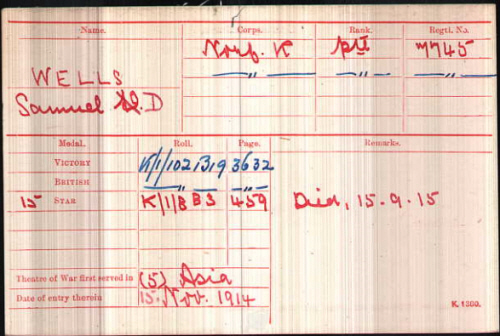 Name. Corps. Rank. Regtl. No.
WELLS Norf. R Pte 7745
Samuel D
Medal. Roll. Page. Remarks.
VICTORY K/1/102B19 3632
BRITISH — " — " — " —
15 STAR K/1/8 B3 459 Died, 15.9.15
Theatre of War first served in (5) Asia
Date of entry therein 15. Nov. 1914
K. 1380.